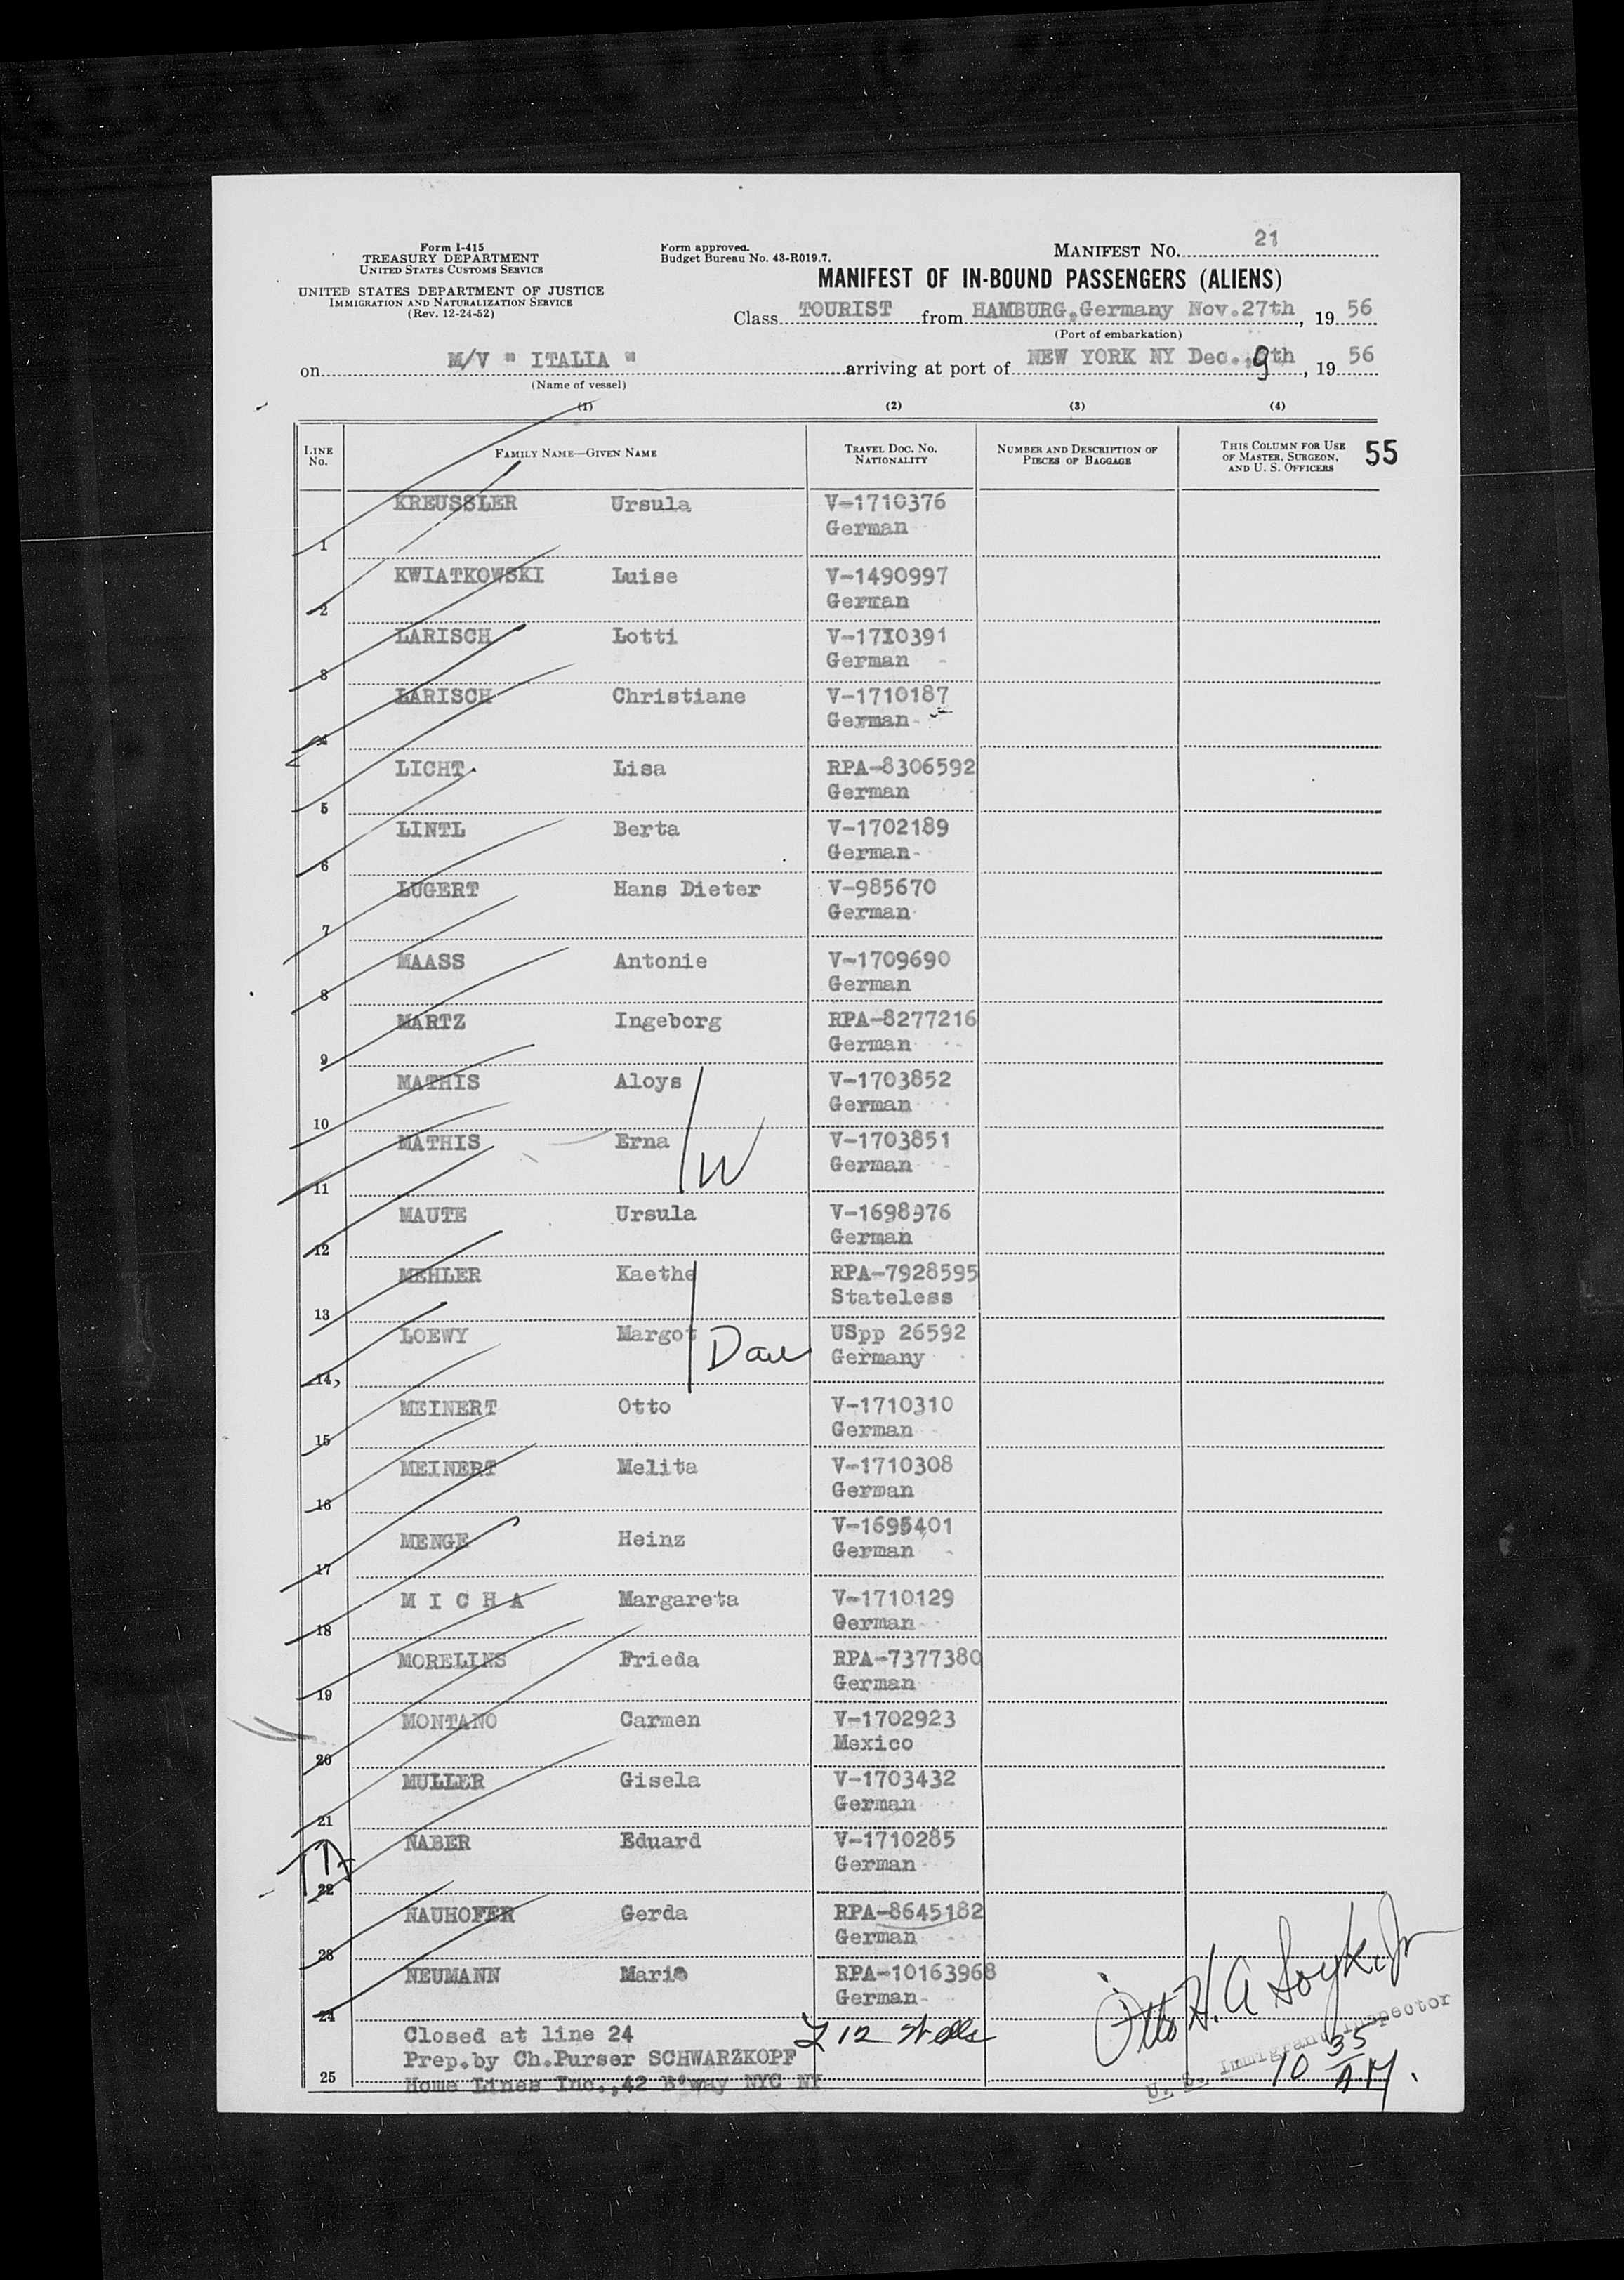 Form I-415
TREASURY DEPARTMENT
UNITED STATES CUSTOMS SERVICE
UNITED STATES DEPARTMENT OF JUSTICE
IMMIGRATION AND NATURALIZATION SERVICE
(Rev. 12-24-52)
Form approved.
Budget Bureau No. 43-R019.7.
MANIFEST NO. 21
MANIFEST OF IN-BOUND PASSENGERS (ALIENS)
Class TOURIST from HAMBURG, Germany Nov. 27th, 19 56
(Port of embarkation)
on M/V " ITALIA " arriving at port of NEW YORK NY Dec. 9th, 19 56
(Name of vessel)
(1) (2) (3) (4)
LINE No. FAMILY NAME—GIVEN NAME TRAVEL DOC. NO. NATIONALITY NUMBER AND DESCRIPTION OF PIECES OF BAGGAGE THIS COLUMN FOR USE OF MASTER, SURGEON, AND U. S. OFFICERS 55
1 KREUSSLER Ursula V-1710376
German
2 KWIATKOWSKI Luise V-1490997
German
3 LARISCH Lotti V-1710391
German
4 LARISCH Christiane V-1710187
German
5 LICHT Lisa RPA-8306592
German
6 LINTL Berta V-1702189
German
7 LUGERT Hans Dieter V-985670
German
8 MAASS Antonie V-1709690
German
9 MARTZ Ingeborg RPA-8277216
German
10 MATHIS Aloys V-1703852
German
11 MATHIS Erna W V-1703851
German
12 MAUTE Ursula V-1698976
German
13 MEHLER Kaethe RPA-7928595
Stateless
14, LOEWY Margot Dau USpp 26592
Germany
15 MEINERT Otto V-1710310
German
16 MEINERT Melita V-1710308
German
17 MENGE Heinz V-1695401
German
18 M I C H A Margareta V-1710129
German
19 MORELINS Frieda RPA-7377380
German
20 MONTANO Carmen V-1702923
Mexico
21 MULLER Gisela V-1703432
German
22 NABER Eduard V-1710285
German
23 NAUHOFER Gerda RPA-8645182
German
24 NEUMANN Maria RPA-10163968
German
Closed at line 24
Prep.by Ch.Purser SCHWARZKOPF
25 Home Lines Inc.,42 B'way NYC NY
12
Otto H. A Soyk Jr
U. S. Immigrant Inspector
10 35 AM.